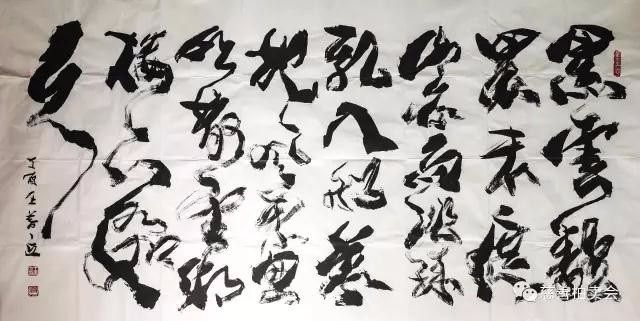 黑雲翻
墨未遮
山白雨跳珠
乱入船卷
地风来忽
吹散望湖
楼下水如
天
丁酉
慈善拍卖会